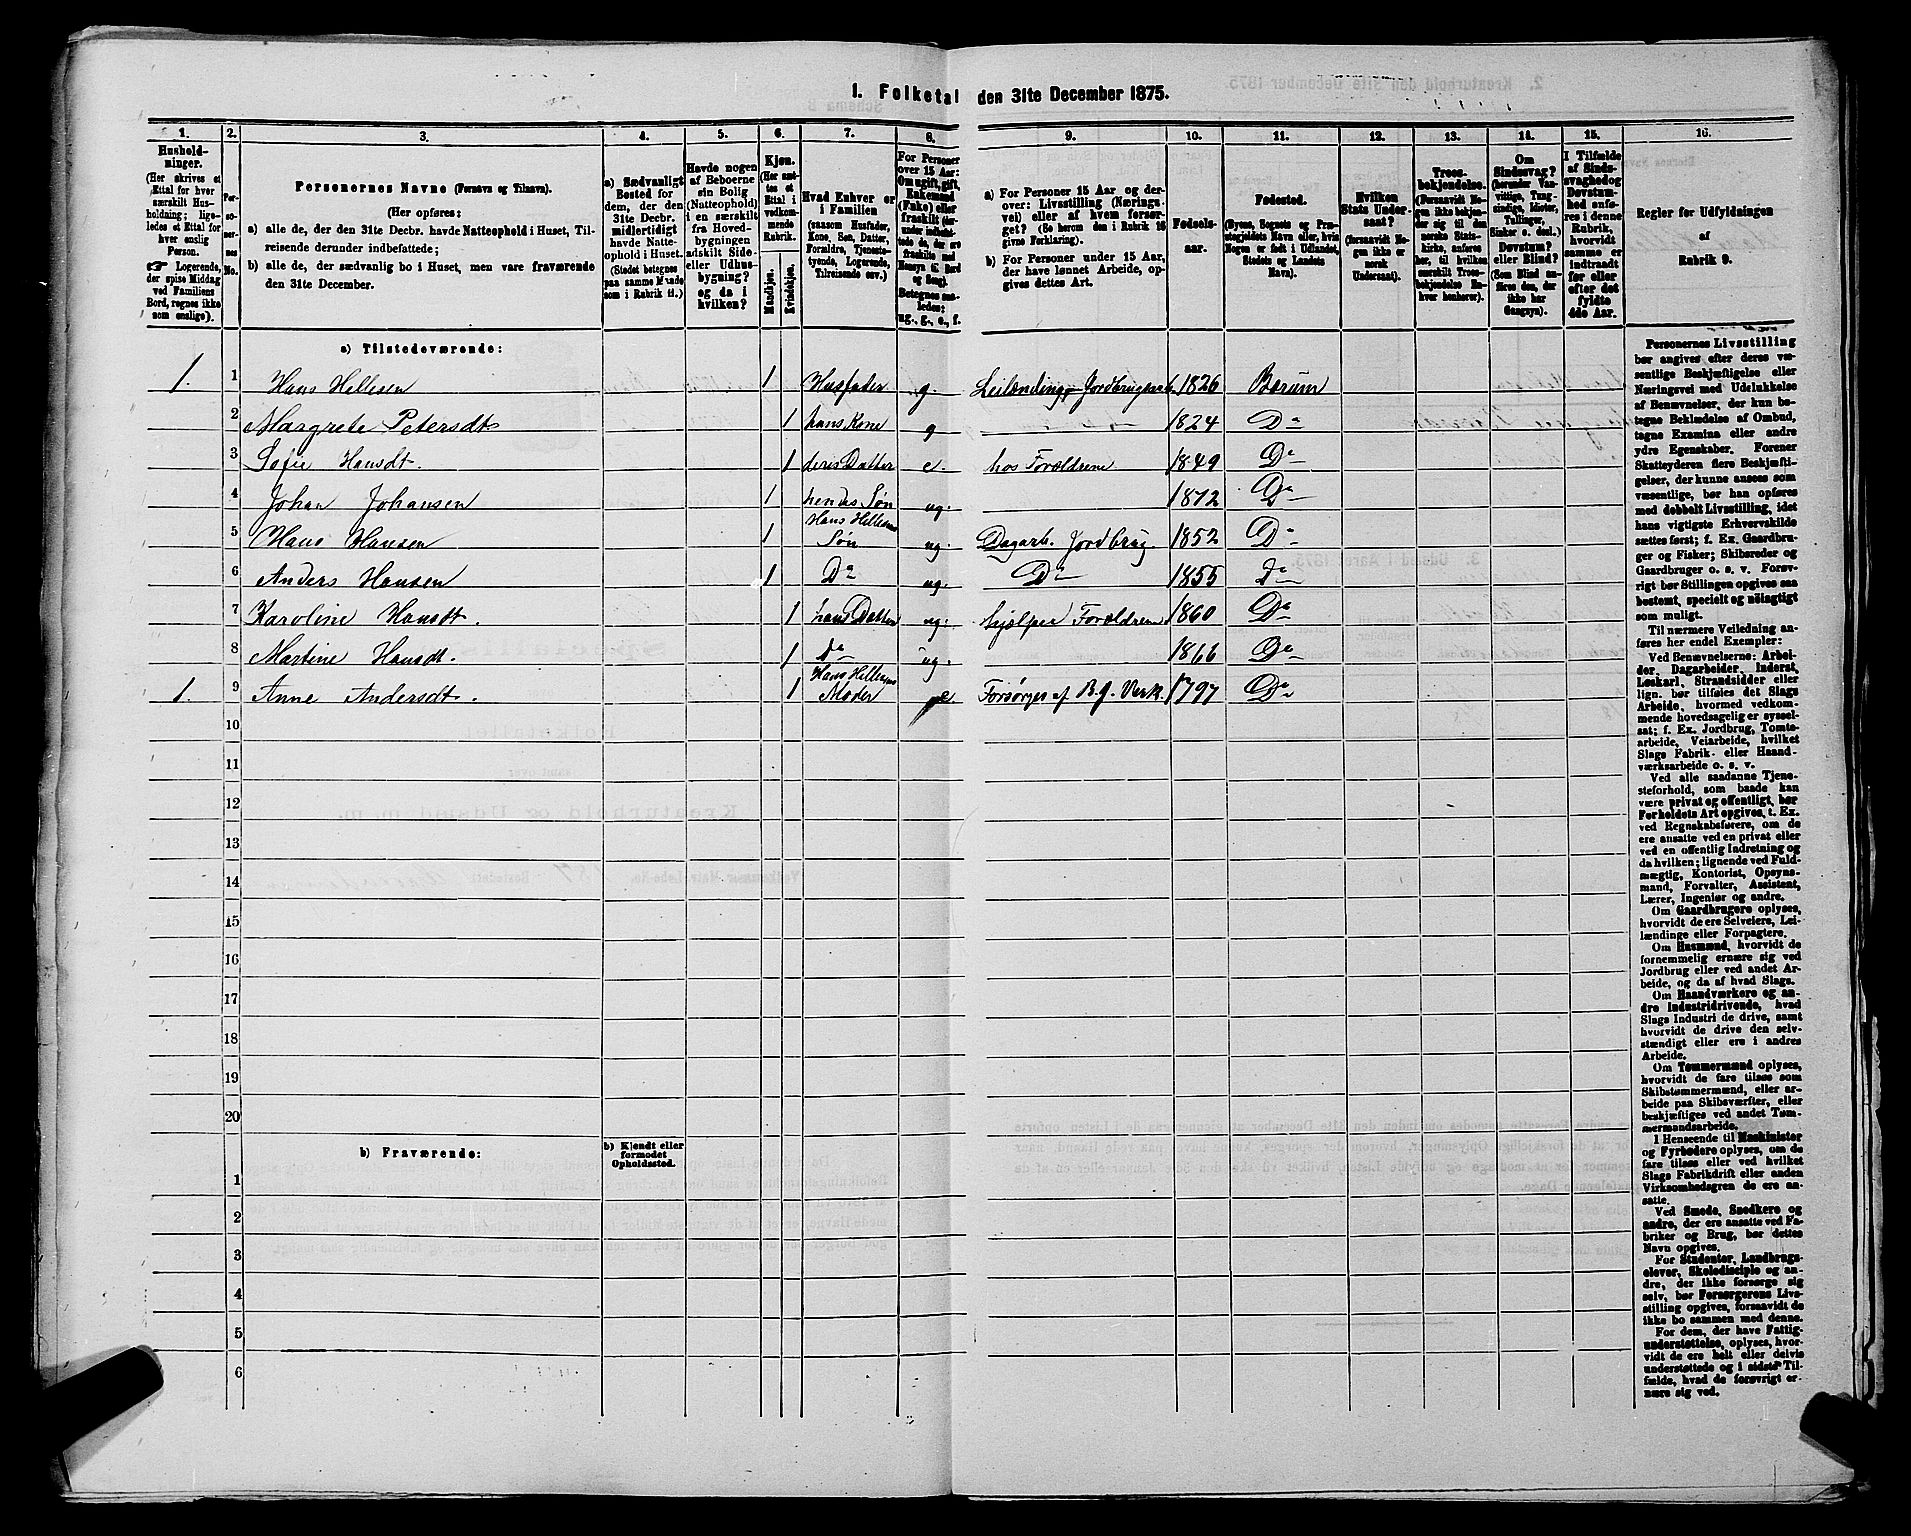 1. Folketal den 31te December 1875.
1. 2. 3. 4. 5. 6. 7. 8. 9. 10. 11. 12. 13. 14. 15. 16.
Hushold-
ninger.
(Her skrives et
Ettal for hver
særskilt Hus-
holdning; lige-
ledes et Ettal for
hver enslig
Person.
☞ Logerende,
der spise Middag
ved Familiens
Bord, regnes ikke
som enslige).
Per-
so-
ner-
nes
No.
Personernes Navne (Fornavn og Tilnavn).
(Her opføres:
a) alle de, der den 31te Decbr. havde Natteophold i Huset, Til-
reisende derunder indbefattede;
b) alle de, der sædvanlig bo i Huset, men vare fraværende
den 31te December.
a) Sædvanligt
Bosted for
dem, der den
31te Decbr.
midlertidigt
havde Natte-
ophold i Huset.
(Stedet betegnes
paa samme Maade
som i Rubrik 11.)
Havde nogen
af Beboerne
sin Bolig
(Natteophold)
i en særskilt
fra Hoved-
bygningen
adskilt Side-
eller Udhus-
bygning?
og da i
hvilken?
Kjøn.
(Her sæt-
tes et
Ettal i
vedkom-
mende
Rubrik.
Mandkjøn.
Kvindekjøn.
Hvad Enhver er
i Familien
(saasom Husfader,
Kone, Søn, Datter,
Forældre, Tjeneste-
tyende, Logerende,
Tilreisende osv.)
For Personer
over 15 Aar:
Om ugift, gift,
Enkemand
(Enke) eller
fraskilt (der-
under indbefat-
tede de, der ere
fraskilte med
Hensyn til Bord
og Seng).
Betegnes saa-
ledes:
ug., g., e., f.
a) For Personer 15 Aar og der-
over: Livsstilling (Nærings-
vei) eller af hvem forsør-
get? (Se herom den i Rubrik 16
givne Forklaring).
b) For Personer under 15 Aar,
der have lønnet Arbeide, op-
gives dettes Art.
Fødsels-
aar.
Fødested.
(Byens, Sognets og Præ-
stegjeldets Navn eller, hvis
Nogen er født i Udlandet,
Stedets og Landets
Navn).
Hvilken
Stats Under-
saat?
(forsaavidt No-
gen ikke er
norsk
Undersaat).
Troes-
bekjendelse.
(Forsaavidt No-
gen ikke bekjen-
der sig til den
norske Stats-
kirke, anføres
her, til hvilken
særskilt Troes-
bekjendelse En-
hver henhører).
Om
Sindssvag?
(herunder Van-
vittige, Tung-
sindige, Idioter,
Tullinger,
Sinker o. desl.)
Døvstum?
eller Blind?
(Som Blind an-
føres den, der
ikke har
Gangsyn).
I Tilfælde
af Sinds-
svaghed og
Døvstum-
hed anfø-
res i denne
Rubrik,
hvorvidt
samme er
indtraadt
før eller
efter det
fyldte
4de Aar.
Regler for Udfyldningen
af
Rubrik 9.
a) Tilstedeværende:
1. 1 Hans Hellesen 1 Husfader g Leilænding, Jordbrugsarb. 1826 Bærum
2 Margrete Petersdt 1 hans Kone g 1824 Do
3 Sofie Hansdt. 1 deres Datter e. hos Forældrene 1849 Do
4 Johan Johansen 1 hendes Søn ug. 1872 Do
5 Hans Hansen 1 Hans Hellesens Søn ug. Dagarb. Jordbrug. 1852 Do
6 Anders Hansen 1 Do ug. Do 1855 Do
7 Karoline Hansdt. 1 hans Datter ug. hjælper Forældrene 1860 Do
8 Martine Hansdt. 1 Do ug. 1866 Do
1. 9 Anne Andersdt. 1 Hans Hellesens Moder e. Forsørges af B.g. Værk. 1797 Do
10
11
12
13
14
15
16
17
18
19
20
b) Fraværende:
b) Kjendt eller
formodet
Opholdssted.
1
2
3
4
5
6
Personernes Livsstilling
bør angives efter deres væ-
sentlige Beskjæftigelse eller
Næringsvei med Udelukkelse
af Benævnelser, der kun be-
tegne Beklædelse af Ombud,
tagne Examina eller andre
ydre Egenskaber. Forener
Skatteyderen flere Beskjæfti-
gelser, der kunne ansees som
væsentlige, bør han opføres
med dobbelt Livsstilling, idet
hans vigtigste Erhvervskilde
sættes først; f. Ex. Gaardbru-
ger og Fisker; Skibsreder og
Gaardbruger o. s. v. Forøv-
rigt bør Stillingen opgives saa
bestemt, specielt og nøiagtigt
som muligt.
Til nærmere Veiledning an-
føres her endel Exempler:
Ved Benævnelserne: Arbei-
der, Dagarbeider, Inderst,
Løskarl, Strandsidder eller
lign. bør tilføies det Slags
Arbeide, hvormed vedkom-
mende hovedsagelig er syssel-
sat; f. Ex. Jordbrug, Tomte-
arbeide, Veiarbeide, hvilket
Slags Fabrik- eller Haand-
værksarbeide o. s. v.
Ved alle saadanne Tjene-
steforhold, som baade kan
være privat og offentligt, bør
Forholdets Art opgives, t. Ex.
ved Regnskabsførere, om de
ere ansatte ved en privat eller
ved en offentlig Indretning og
da hvilken; lignende ved Fuld-
mægtig, Kontorist, Opsyns-
mand, Forvalter, Assistent,
Lærer, Ingeniør og andre.
Om Gaardbrugere oplyses,
hvorvidt de ere Selveiere, Lei-
lændinge eller Forpagtere.
Om Husmænd, hvorvidt de
fornemmelig ernære sig ved
Jordbrug eller ved andet Ar-
beide, og da af hvad Slags.
Om Haandværkere og an-
dre Industridrivende, hvad
Slags Industri de drive, samt
hvorvidt de drive den selv-
stændigt eller ere i andres
Arbeide.
Om Tømmermænd oplyses,
hvorvidt de fare tilsøs som
Skibstømmermænd, eller ar-
beide paa Skibsværfter, eller
beskjæftiges ved andet Tøm-
mermandsarbeide.
I Henseende til Maskinister
og Fyrbødere oplyses, om de
fare tilsøs eller ved hvilket
Slags Fabrikdrift eller anden
Virksomhedsgren de ere an-
satte.
Ved Smede, Snedkere og
andre, der ere ansatte ved Fa-
briker og Brug, bør dettes
Navn opgives.
For Studenter, Landbrugs-
elever, Skoledisciple og an-
dre, der ikke forsørge sig
selv, bør Forsørgerens Livs-
stilling opgives, forsaavidt de
ikke bo sammen med denne.
For dem, der have Fattig-
understøttelse, oplyses, hvor-
vidt de ere helt eller delvis
understøttede og i sidste Til-
fælde, hvad de forøvrigt er-
nære sig ved.